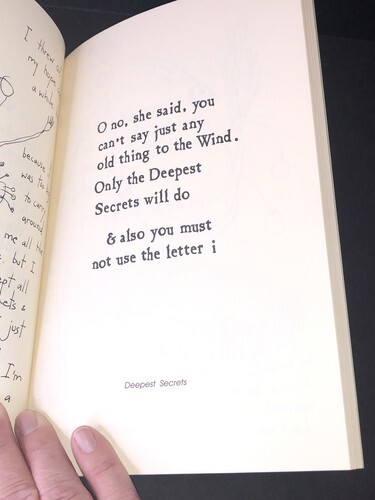 I threw
my hope
a while
because
was too
to carry
around
me all the
. but I
just
I'm
a
O no, she said, you
can't say just any
old thing to the Wind.
Only the Deepest
Secrets will do
& also you must
not use the letter i
Deepest Secrets